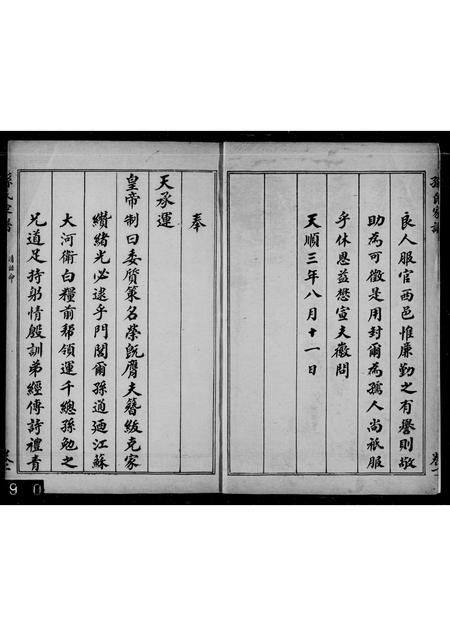 孫氏家譜
卷一
良人服官西邑惟廉勤之有譽則敬
助為可徵是用封爾為孺人尚祇服
乎休恩益懋宣夫徽問
天順三年八月十一日
奉
天承運
皇帝制曰委質策名榮既膺夫簪紱克家
纘緒光必逮乎門閭爾孫道迺江蘇
大河衛白糧前幫領運千總孫勉之
兄道足持躬情殷訓弟經傳詩禮青
孫氏家譜
誥敕
卷一
90